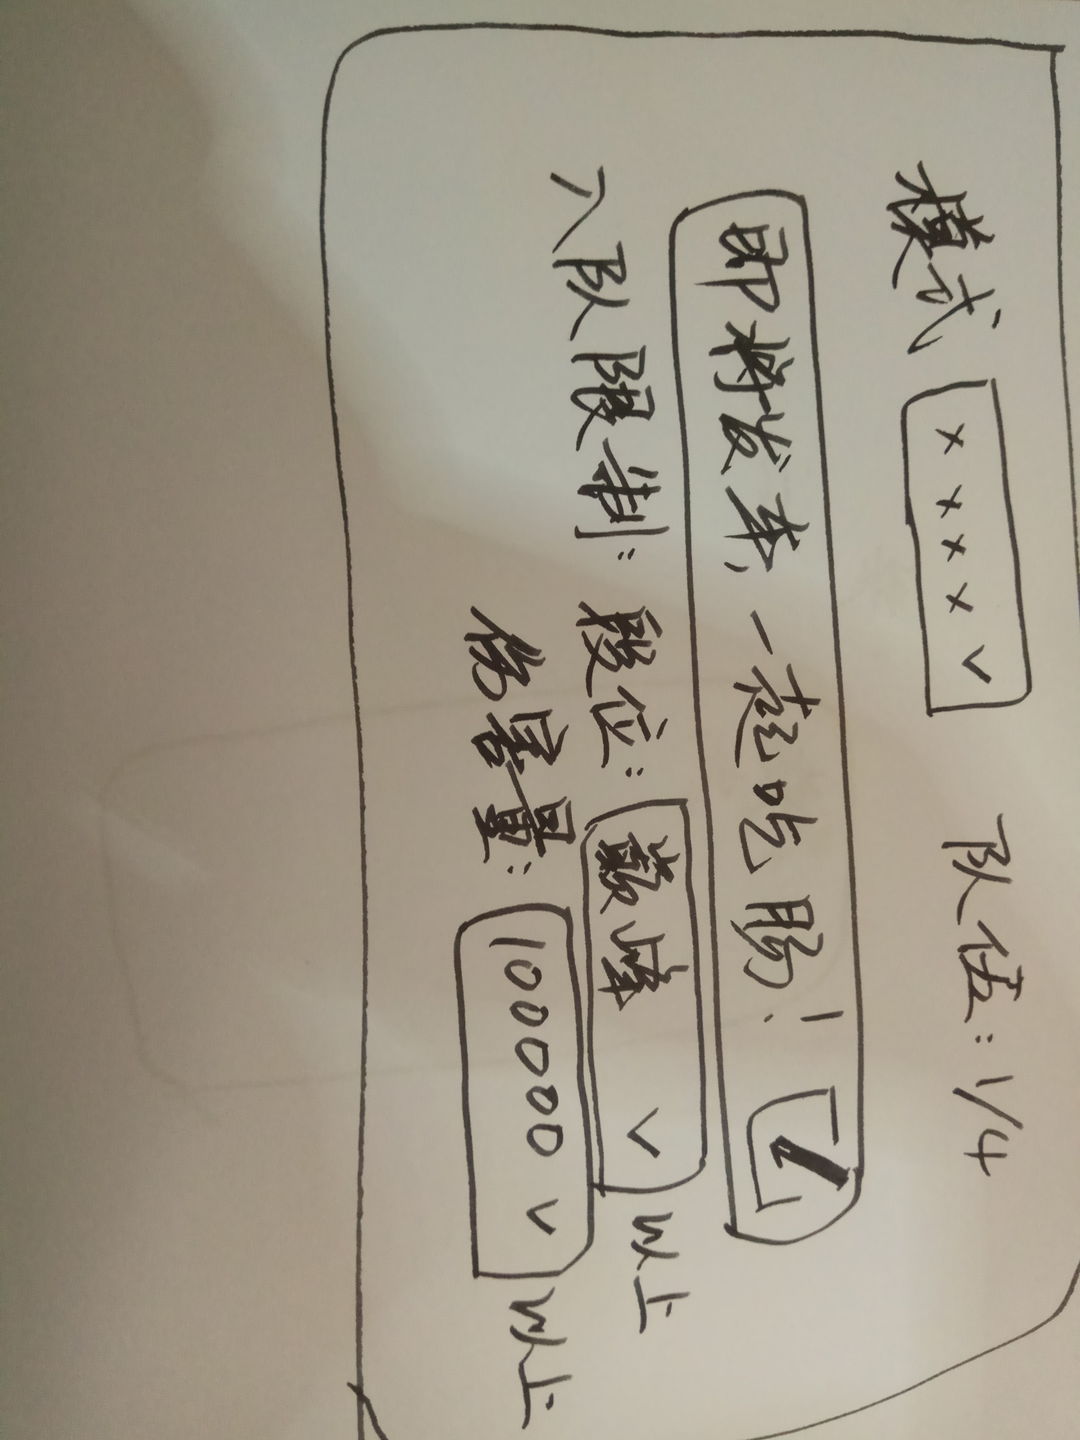 模式 ××××∨ 队伍：1/4
即将发车，一起吃肠！
入队限制：段位：巅峰 ∨ 以上
伤害量：100000 ∨ 以上